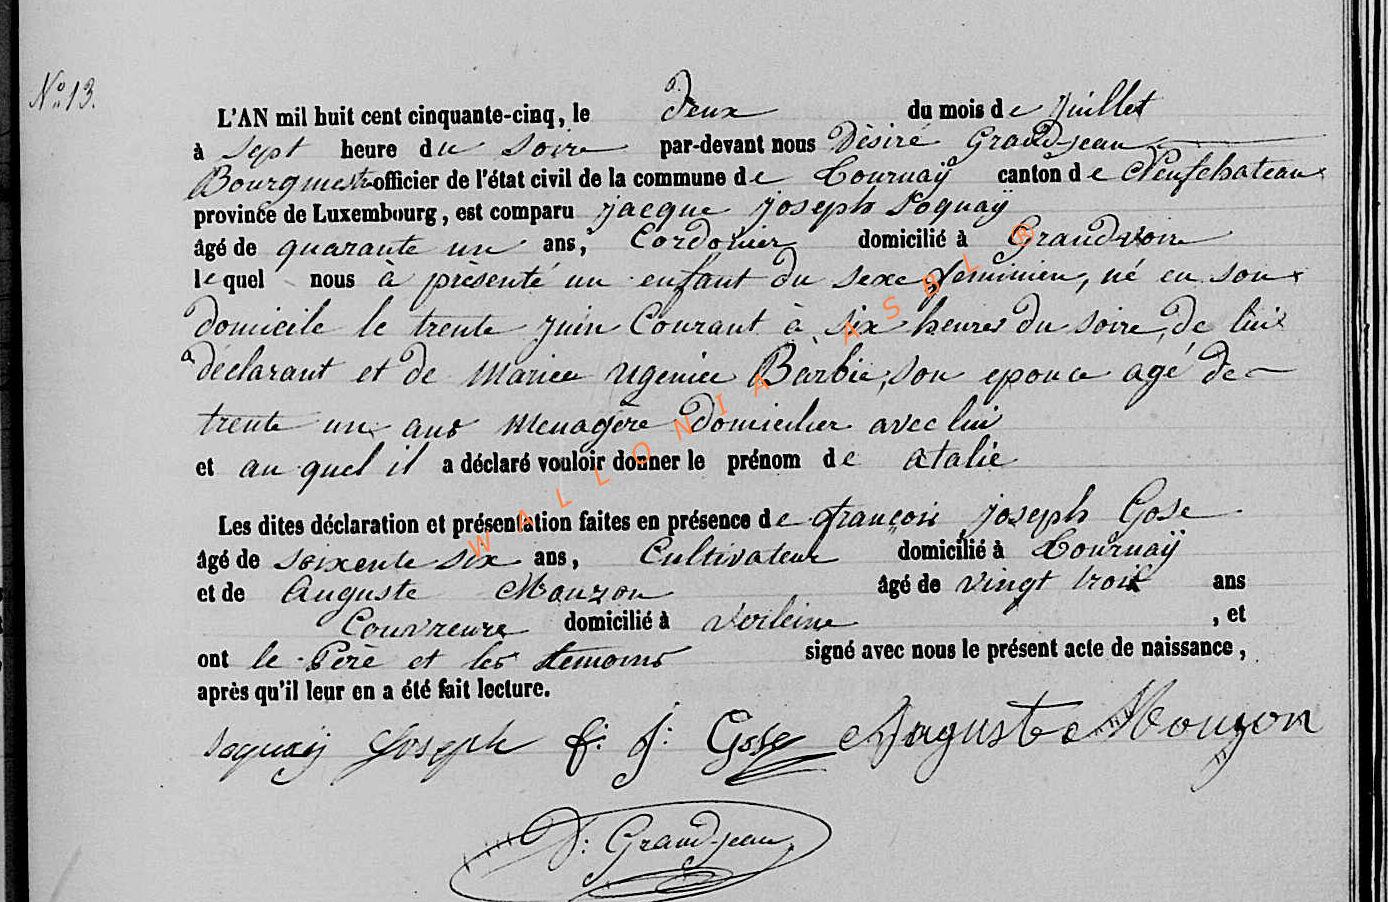 N° 13.
L'AN mil huit cent cinquante-cinq, le deux du mois de juillet
à sept heure du soire par-devant nous Dèsiré Grand-jean
Bourgmestre officier de l'état civil de la commune de Tournaÿ canton de Neufchateau
province de Luxembourg, est comparu jacque joseph Soquaÿ
âgé de quarante un ans, Cordonier domicilié à Grandvoire
le quel nous à présenté un enfant du sexe feminien, né en son
domicile le trente juin Courant à six heures du soire, de lui
déclarant et de Mariee ugeniee Barbie, son epouce agé de
trente un ans Menagère domicilier avec lui
et au quel il a déclaré vouloir donner le prénom de atalie
Les dites déclaration et présentation faites en présence de françois joseph Gose
âgé de soixente six ans, Cultivateur domicilié à Tournaÿ
et de Auguste Mouzon âgé de vingt trois ans
Couvreure domicilié à Verleine , et
ont le Père et les temoins signé avec nous le présent acte de naissance,
après qu'il leur en a été fait lecture.
Soquaÿ Joseph f: j: Gose Auguste Mouzon
D: Grand-jean
WALLONIA ASBL